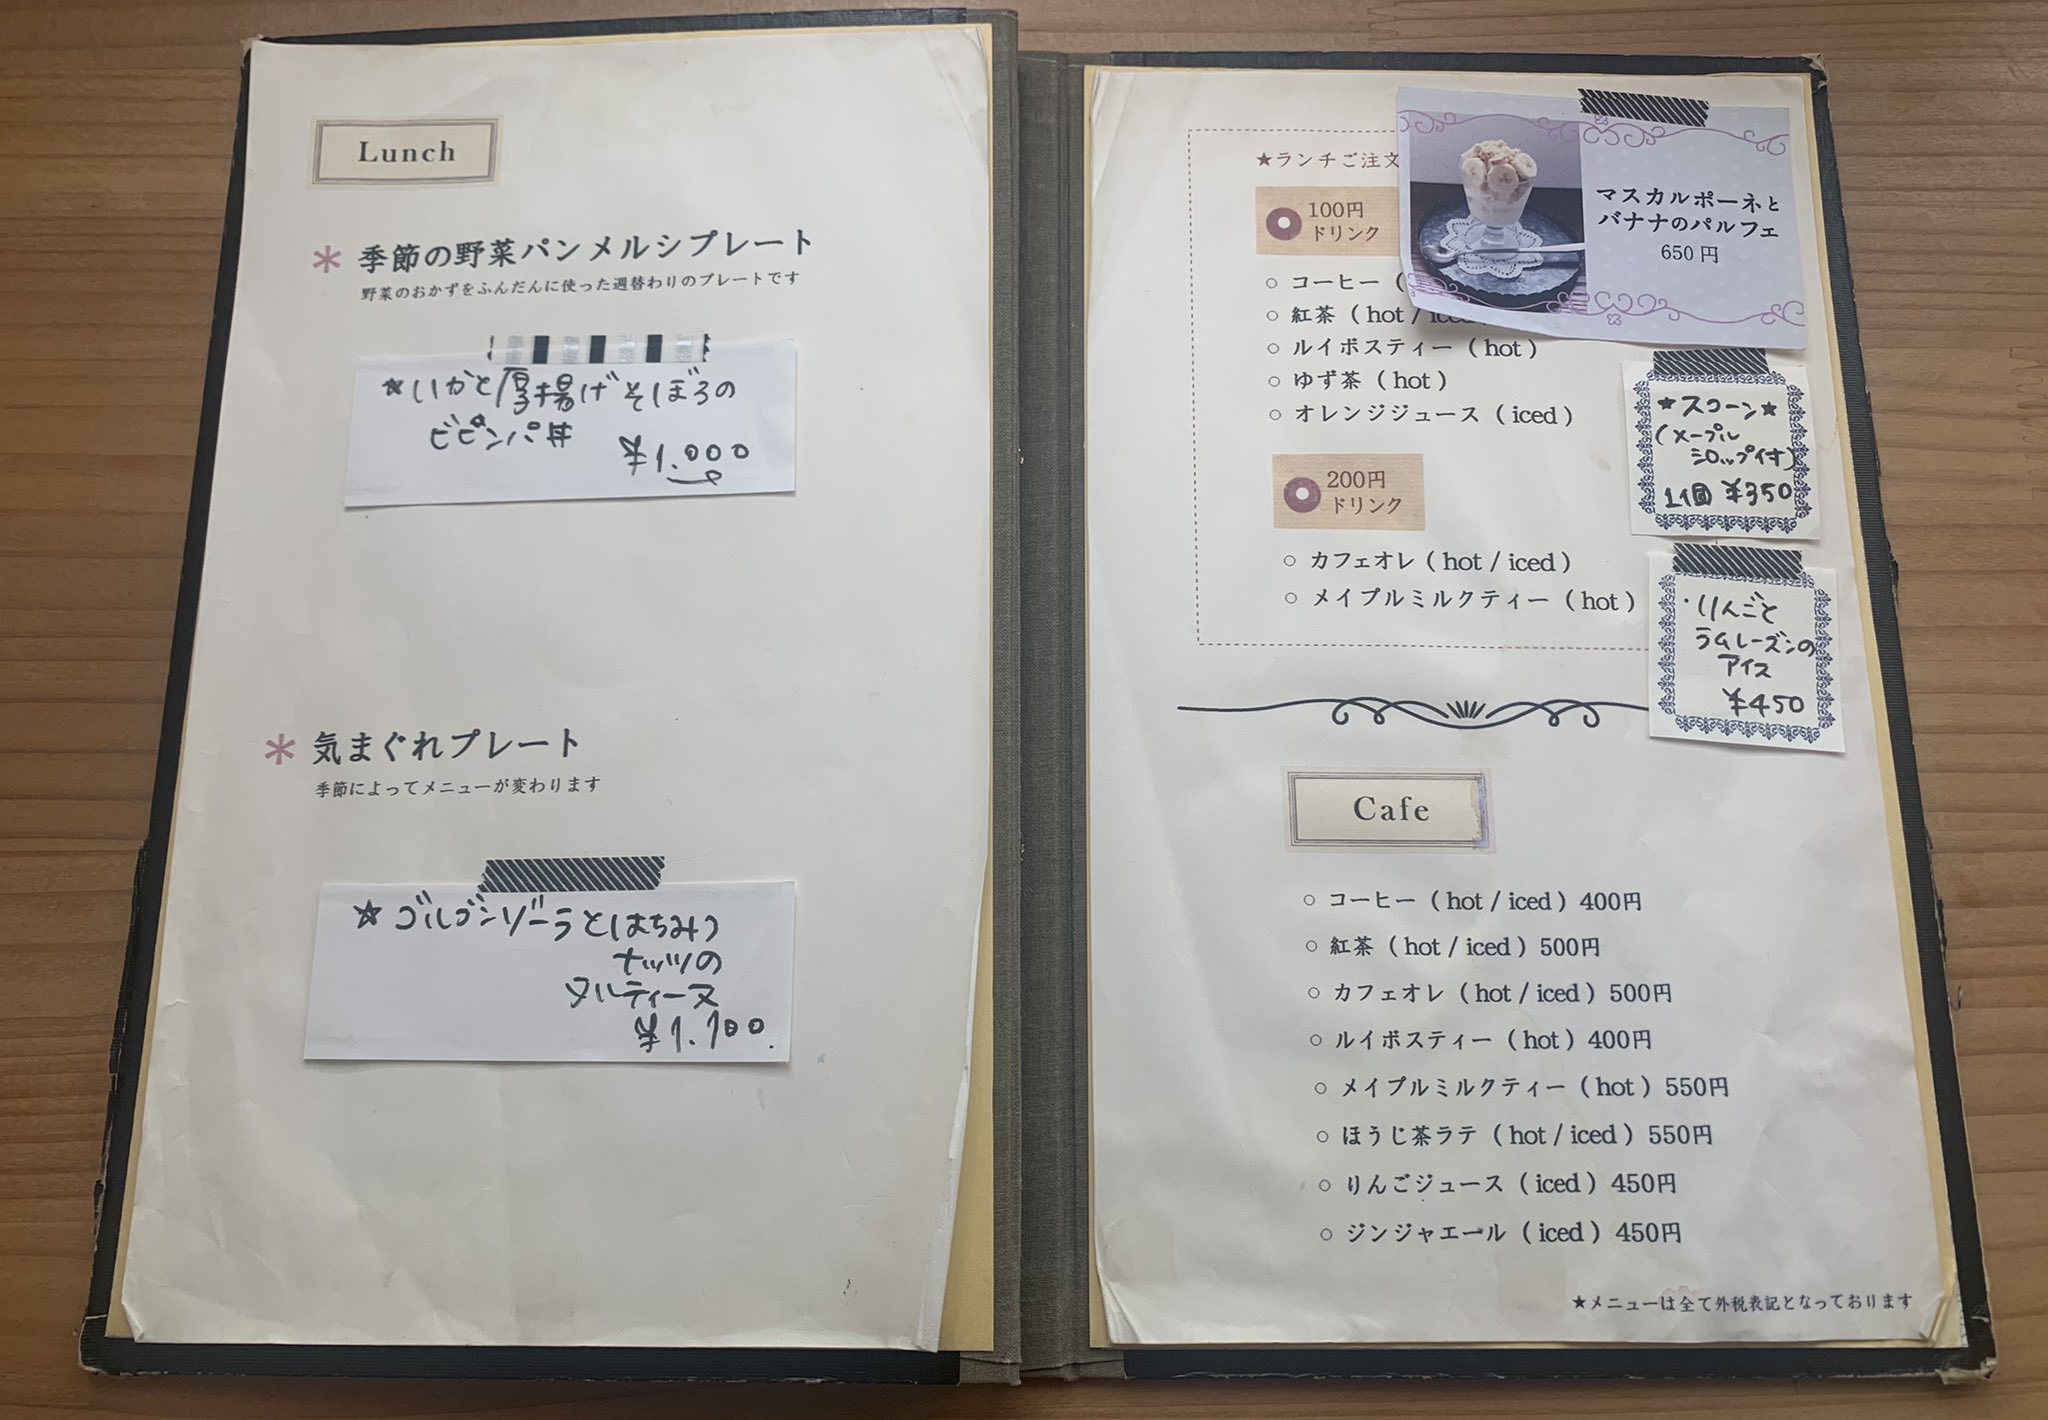 Lunch
* 季節の野菜パンメルシプレート
野菜のおかずをふんだんに使った週替わりのプレートです
☆いかと厚揚げそぼろの
ビビンパ丼
¥1.000
* 気まぐれプレート
季節によってメニューが変わります
☆ゴルゴンゾーラとはちみつ
ナッツの
タルティーヌ
¥1.100.
★ランチご注文
100円
ドリンク
○ コーヒー (
○ 紅茶 ( hot / iced
○ ルイボスティー ( hot )
○ ゆず茶 ( hot )
○ オレンジジュース ( iced )
200円
ドリンク
○ カフェオレ ( hot / iced )
○ メイプルミルクティー ( hot )
マスカルポーネと
バナナのパルフェ
650 円
★スコーン★
(メープル
シロップ付)
1個 ¥350
・りんごと
ラムレーズンの
アイス
¥450
Cafe
○ コーヒー ( hot / iced ) 400円
○ 紅茶 ( hot / iced ) 500円
○ カフェオレ ( hot / iced ) 500円
○ ルイボスティー ( hot ) 400円
○ メイプルミルクティー ( hot ) 550円
○ ほうじ茶ラテ ( hot / iced ) 550円
○ りんごジュース ( iced ) 450円
○ ジンジャエール ( iced ) 450円
★メニューは全て外税表記となっております